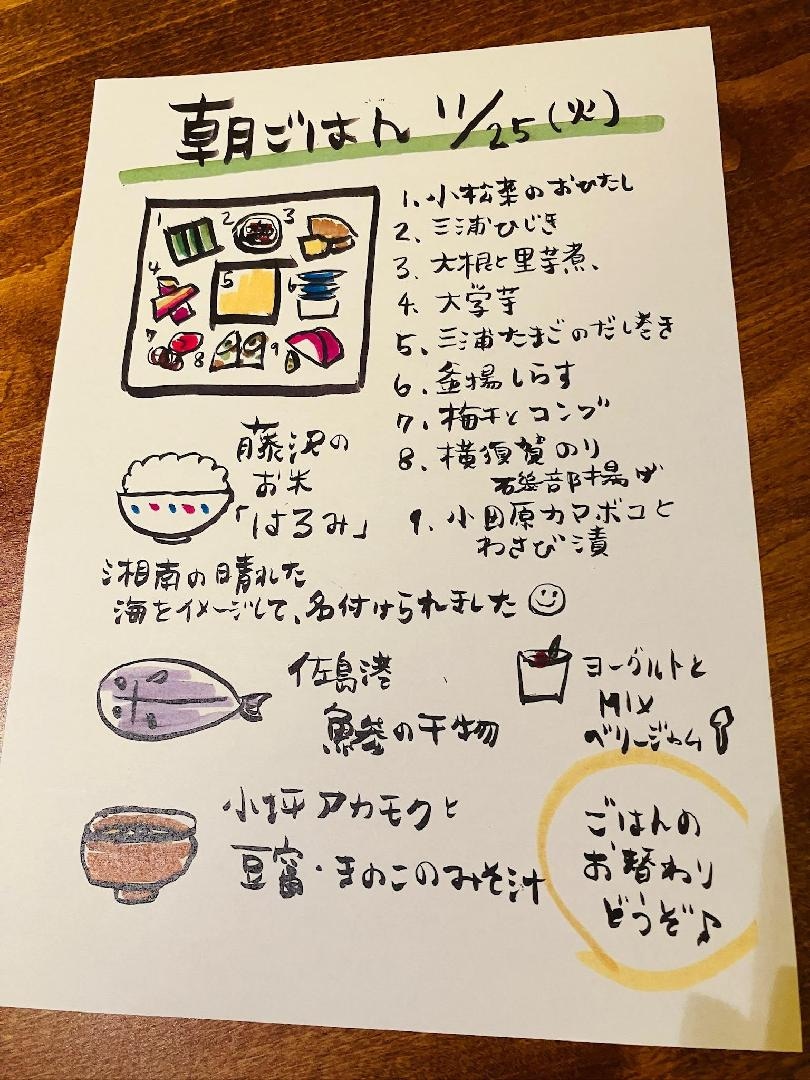 朝ごはん 11/25(火)
1 2 3
4 5 6
7 8 9
1. 小松菜のおひたし
2. 三浦ひじき
3. 大根と里芋煮、
4. 大学芋
5、三浦たまごのだし巻き
6、釜揚しらす
7、梅干とコンブ
8、横須賀のり
磯部揚げ
9、小田原カマボコと
わさび漬
藤沢の
お米
「はるみ」
湘南の晴れた
海をイメージして、名付けられました
佐島港
鯵の干物
ヨーグルトと
MIX
ベリージャム
小坪アカモクと
豆富・きのこのみそ汁
ごはんの
お替わり
どうぞ♪